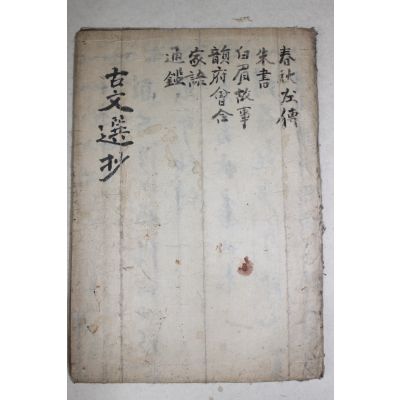 春秋左傳
朱書
白眉故事
韻府會合
家語
通鑑
古文選抄